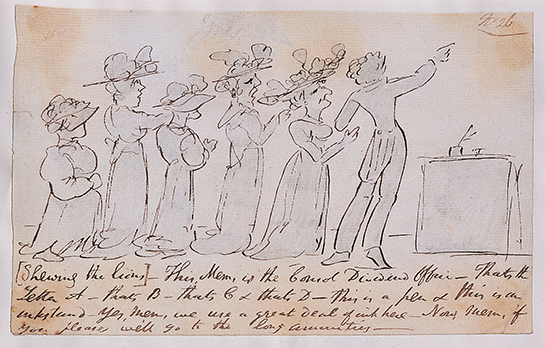 No 26
[Shewing the lions] – This, Mem, is the Consol Dividend Office – That's the
Letter A – that's B – that's C & that's D – this is a pen & this is an
inkstand – Yes, Mem, we use a great deal of ink here – Now, Mem, if
you please we'll go to the long annuities –